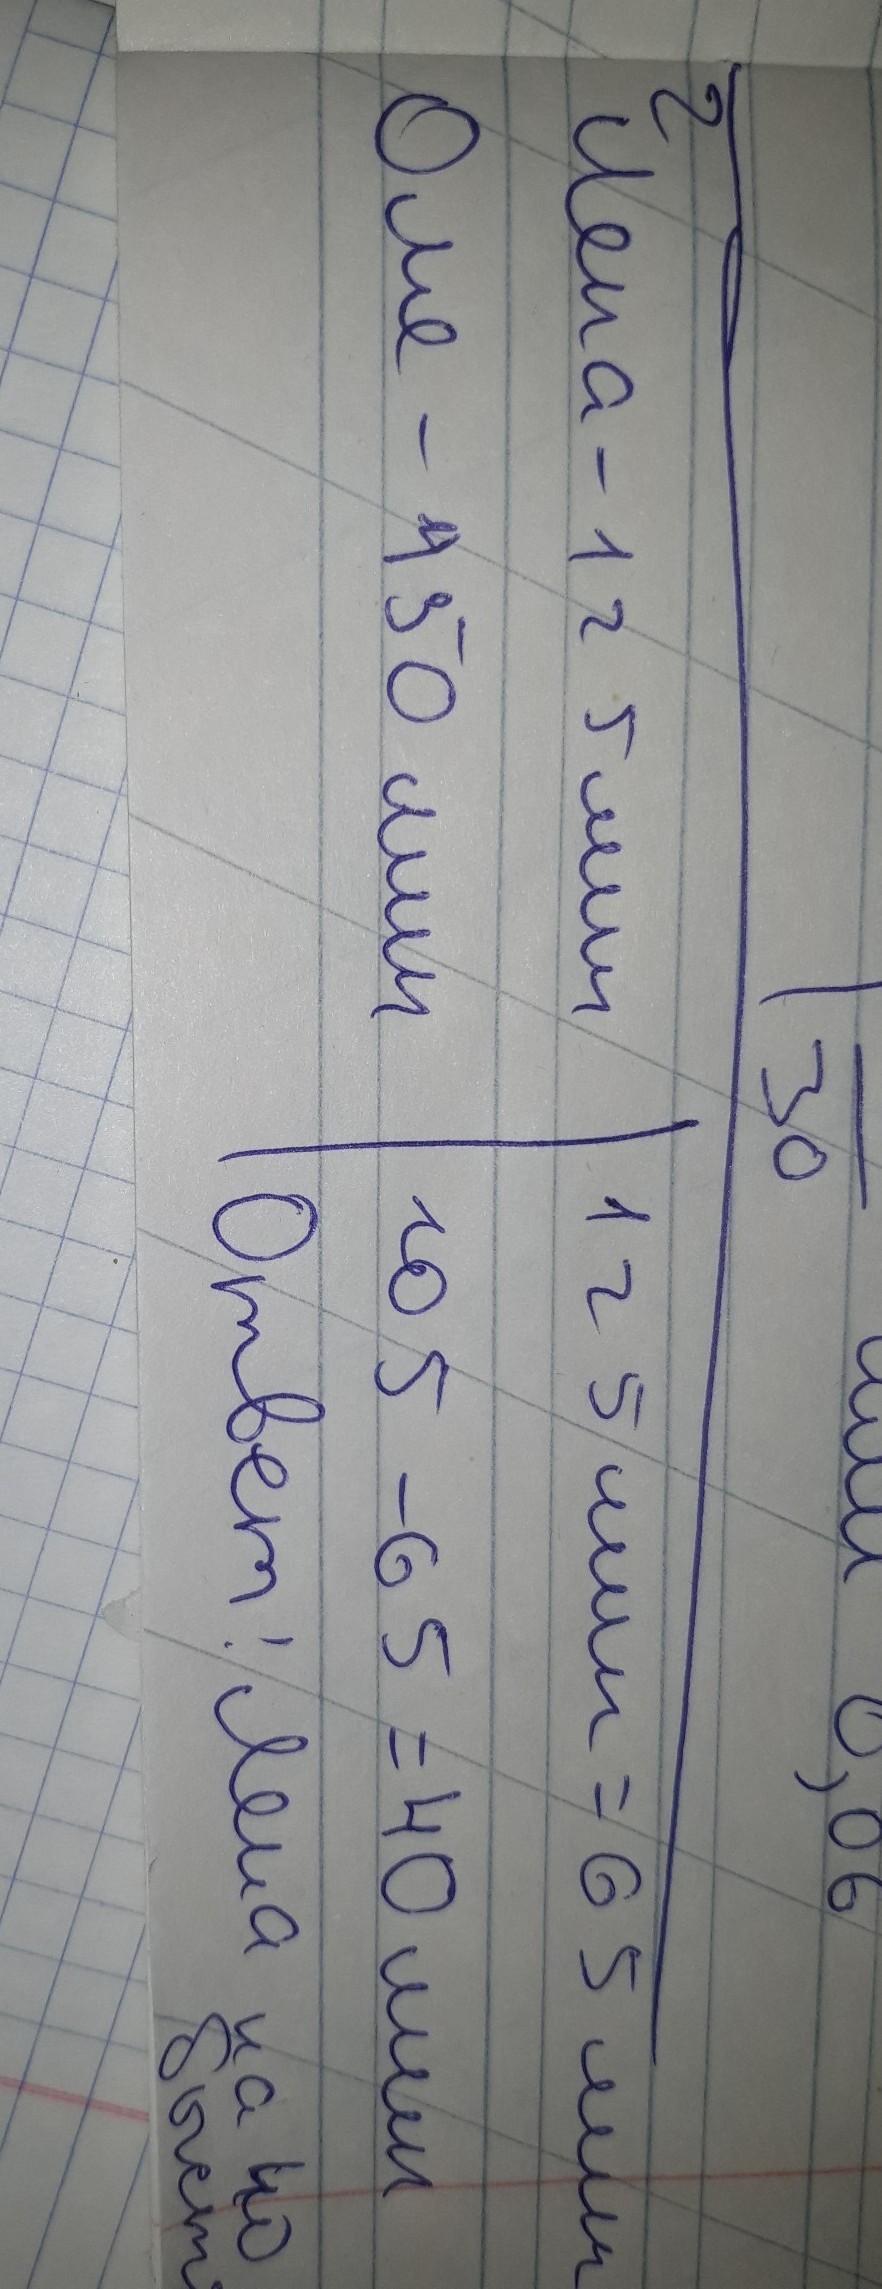 или 0,06
30
2
Лена - 1 г 5 мин | 1 г 5 мин = 65 мин
Оле - 150 мин | 105 - 65 = 40 мин
Ответ: Лена на 40
быст